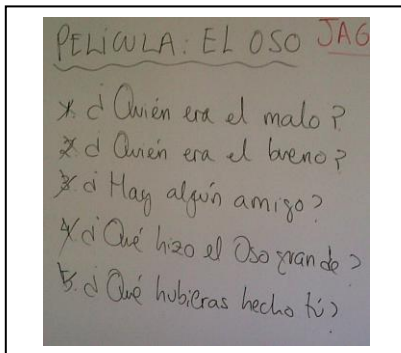 PELÍCULA: EL OSO JAG
1. ¿Quién era el malo?
2. ¿Quién era el bueno?
3. ¿Hay algún amigo?
4. ¿Qué hizo el Oso grande?
5. ¿Qué hubieras hecho tú?